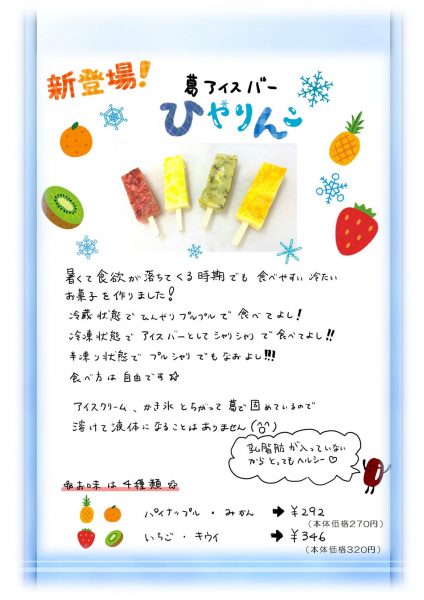 新登場！
葛アイスバー
ひやりんこ
暑くて食欲が落ちてくる時期でも食べやすい冷たい
お菓子を作りました！
冷蔵状態でひんやりプルプルで食べてよし！
冷凍状態でアイスバーとしてシャリシャリで食べてよし!!
半凍り状態でプルシャリでもなおよし!!!
食べ方は自由です☆
アイスクリーム、かき氷とちがって葛で固めているので
溶けて液体になることはありません(^o^)
乳脂肪が入っていない
からとってもヘルシー♡
お味は4種類
パイナップル・みかん ➡ ¥292
(本体価格270円)
いちご・キウイ ➡ ¥346
(本体価格320円)